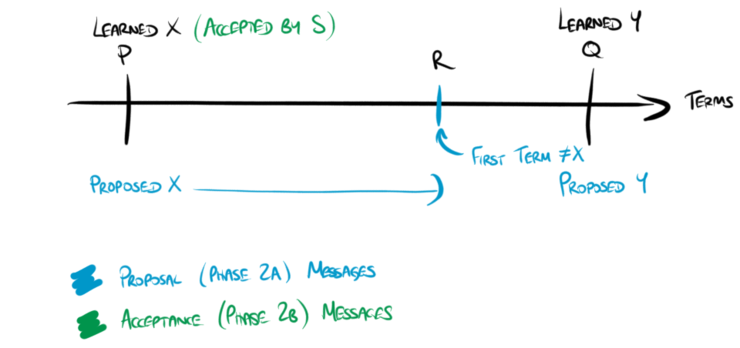 LEARNED X (ACCEPTED BY S)
P
LEARNED Y
Q
R
TERMS
FIRST TERM ≠X
PROPOSED X
PROPOSED Y
PROPOSAL (PHASE 2A) MESSAGES
ACCEPTANCE (PHASE 2B) MESSAGES